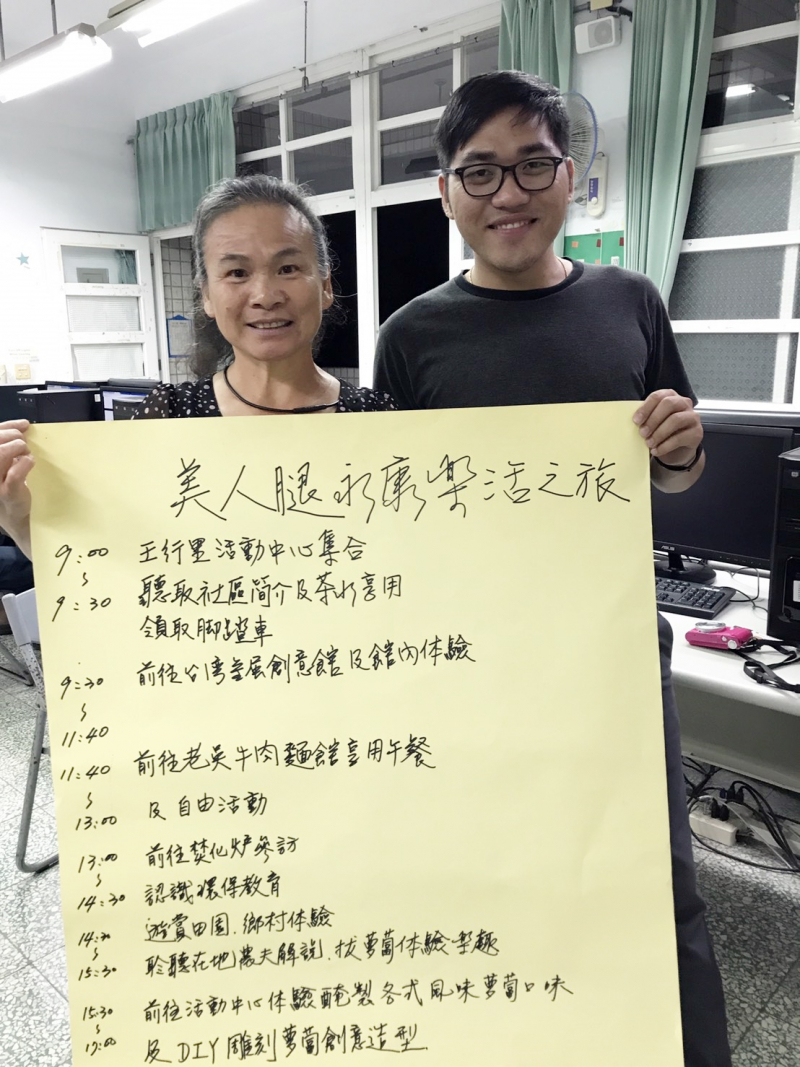 美人腿永康樂活之旅
9:00 王行里活動中心集合
~
9:30 聽取社區簡介及茶水享用
領取腳踏車
9:30 前往台灣金屬創意館及館內体驗
~
11:40
11:40 前往老吳牛肉麵館享用午餐
~
及自由活動
13:00
13:00 前往焚化炉參訪
~
14:30 認識環保教育
14:30 遊賞田園.鄉村体驗
~
15:30 聆聽在地農夫解說.拔蘿蔔体驗樂趣
15:30 前往活動中心体驗醃製各式風味蘿蔔口味
~
17:00 及DIY雕刻蘿蔔創意造型.
ASUS